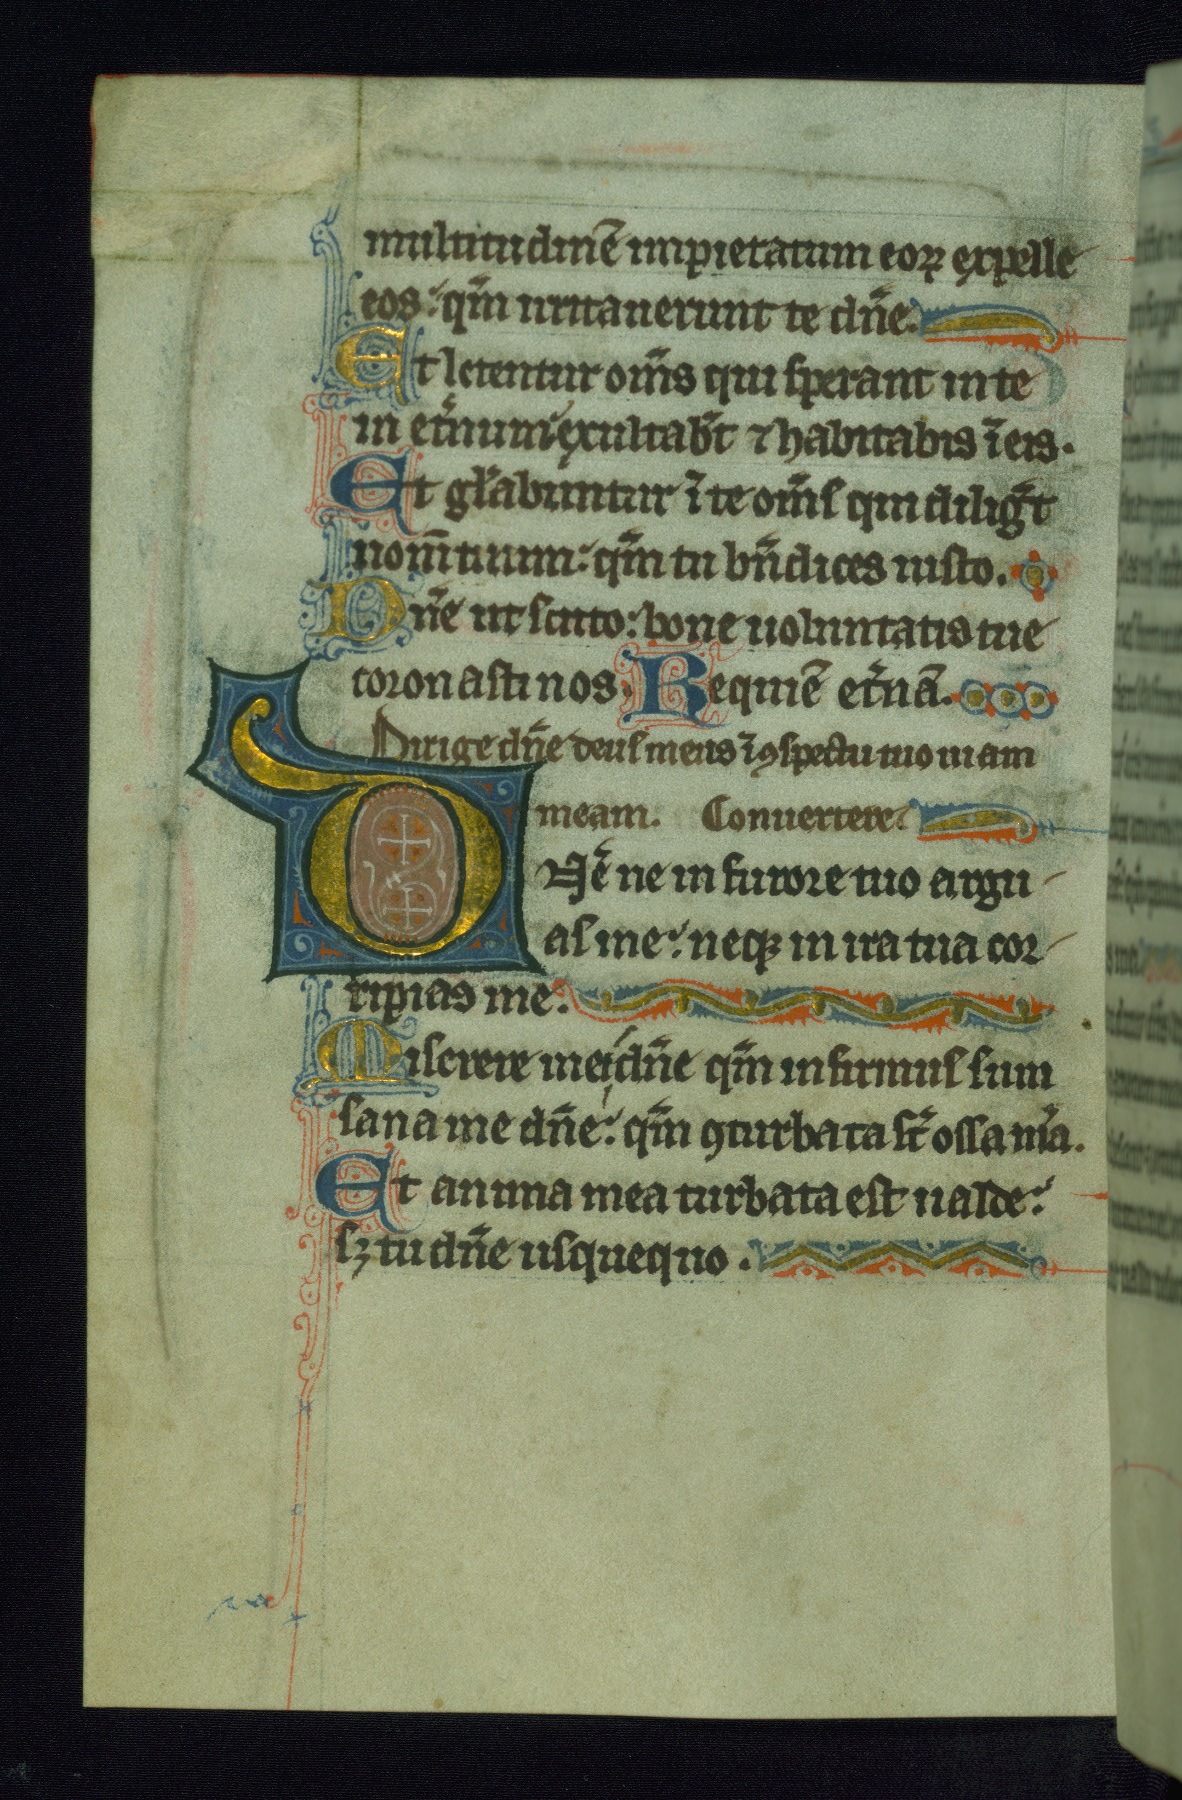 multitudinē impietatum eoꝝ expelle
eos: qm̄ irritauerunt te dn̄e.
Et letentur om̄s qui sperant in te
in et̄num exultabt̄ ⁊ habitabis ī eis.
Et gl̄abuntur ī te om̄s qui diligt̄
nom̄ tuum: qm̄ tu bn̄dices iusto.
Dn̄e ut scuto: bone uoluntatis tue
coronasti nos. Requiē et̄nā.
Dirige dn̄e deus meus ī ꝯspectu tuo uiam
meam. Conuertere.
DNē ne in furore tuo argu
as me: neqꝫ in ira tua cor
ripias me.
Miserere mei dn̄e qm̄ infirmus sum
sana me dn̄e: qm̄ ꝯturbata st̄ ossa m̄a.
Et anima mea turbata est ualde:
sꝫ tu dn̄e usquequo.